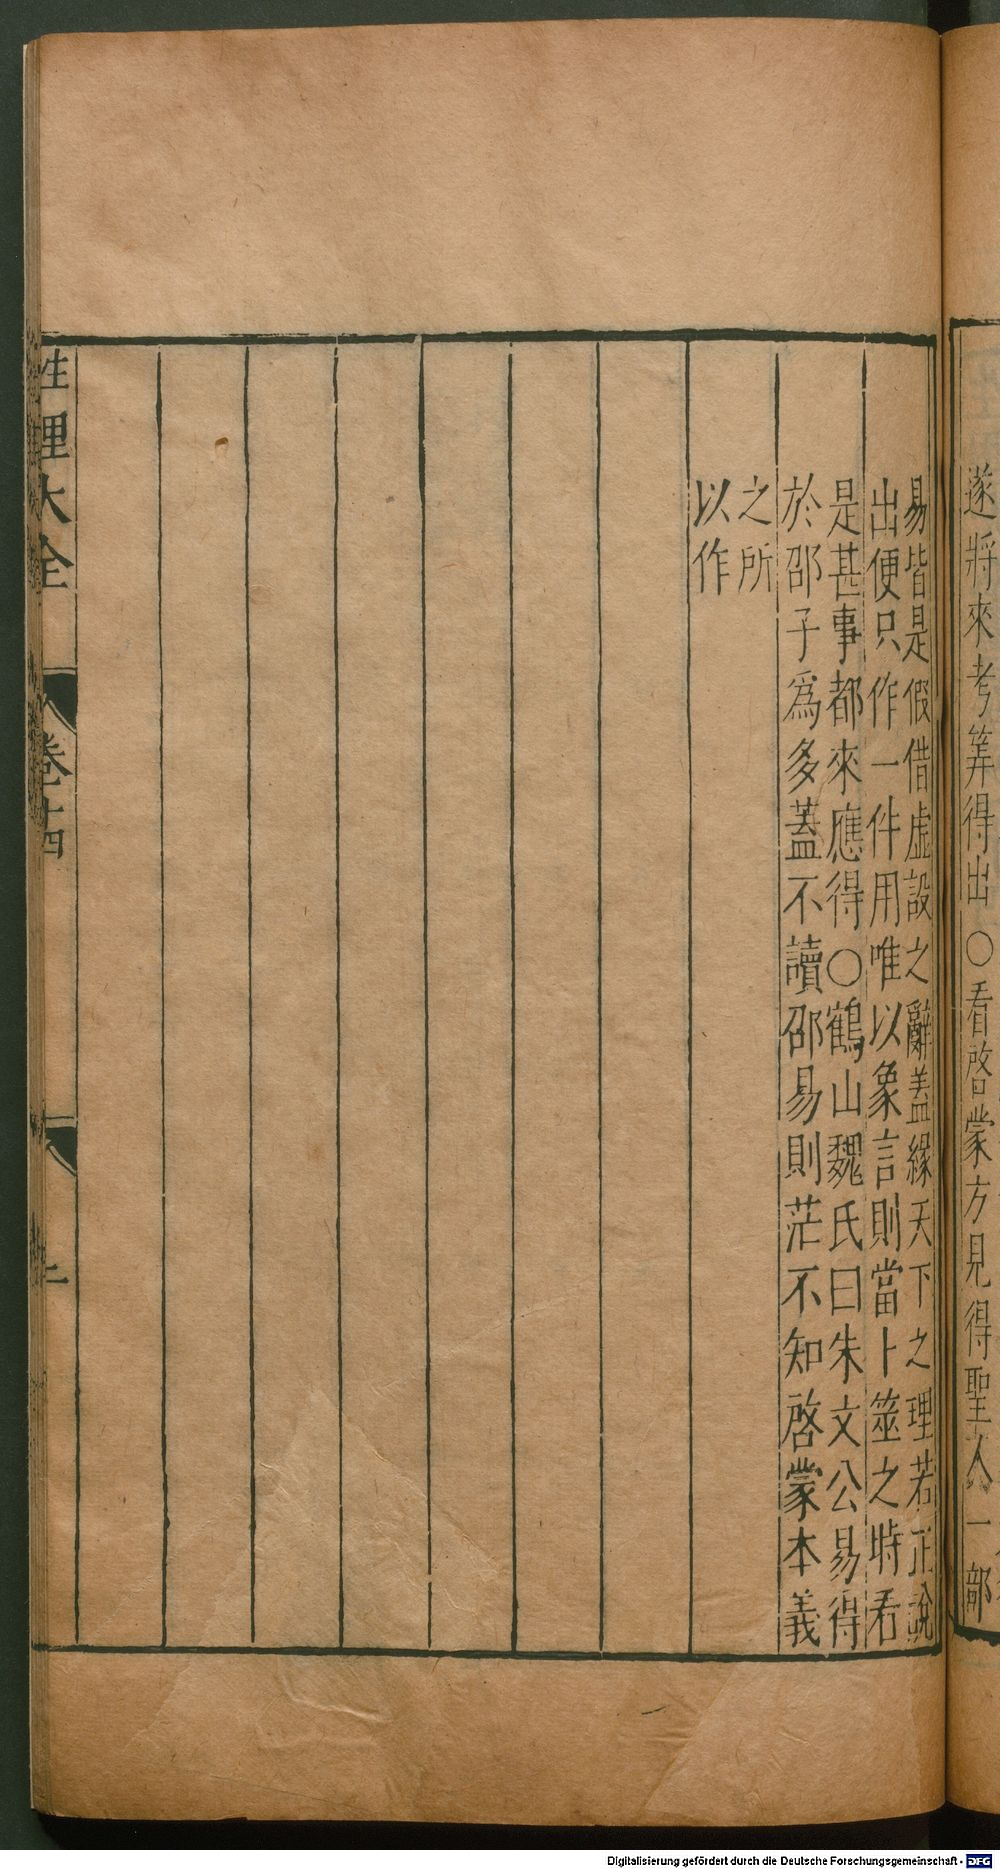 遂將來考筭得出○看啓蒙方見得聖人一部
易皆是假借虛設之辭蓋緣天下之理若正說
出便只作一件用唯以象言則當卜筮之時看
是甚事都來應得○鶴山魏氏曰朱文公易得
於邵子爲多蓋不讀邵易則茫不知啓蒙本義
之所
以作
性理大全
卷十四
二
Digitalisierung gefördert durch die Deutsche Forschungsgemeinschaft - DFG